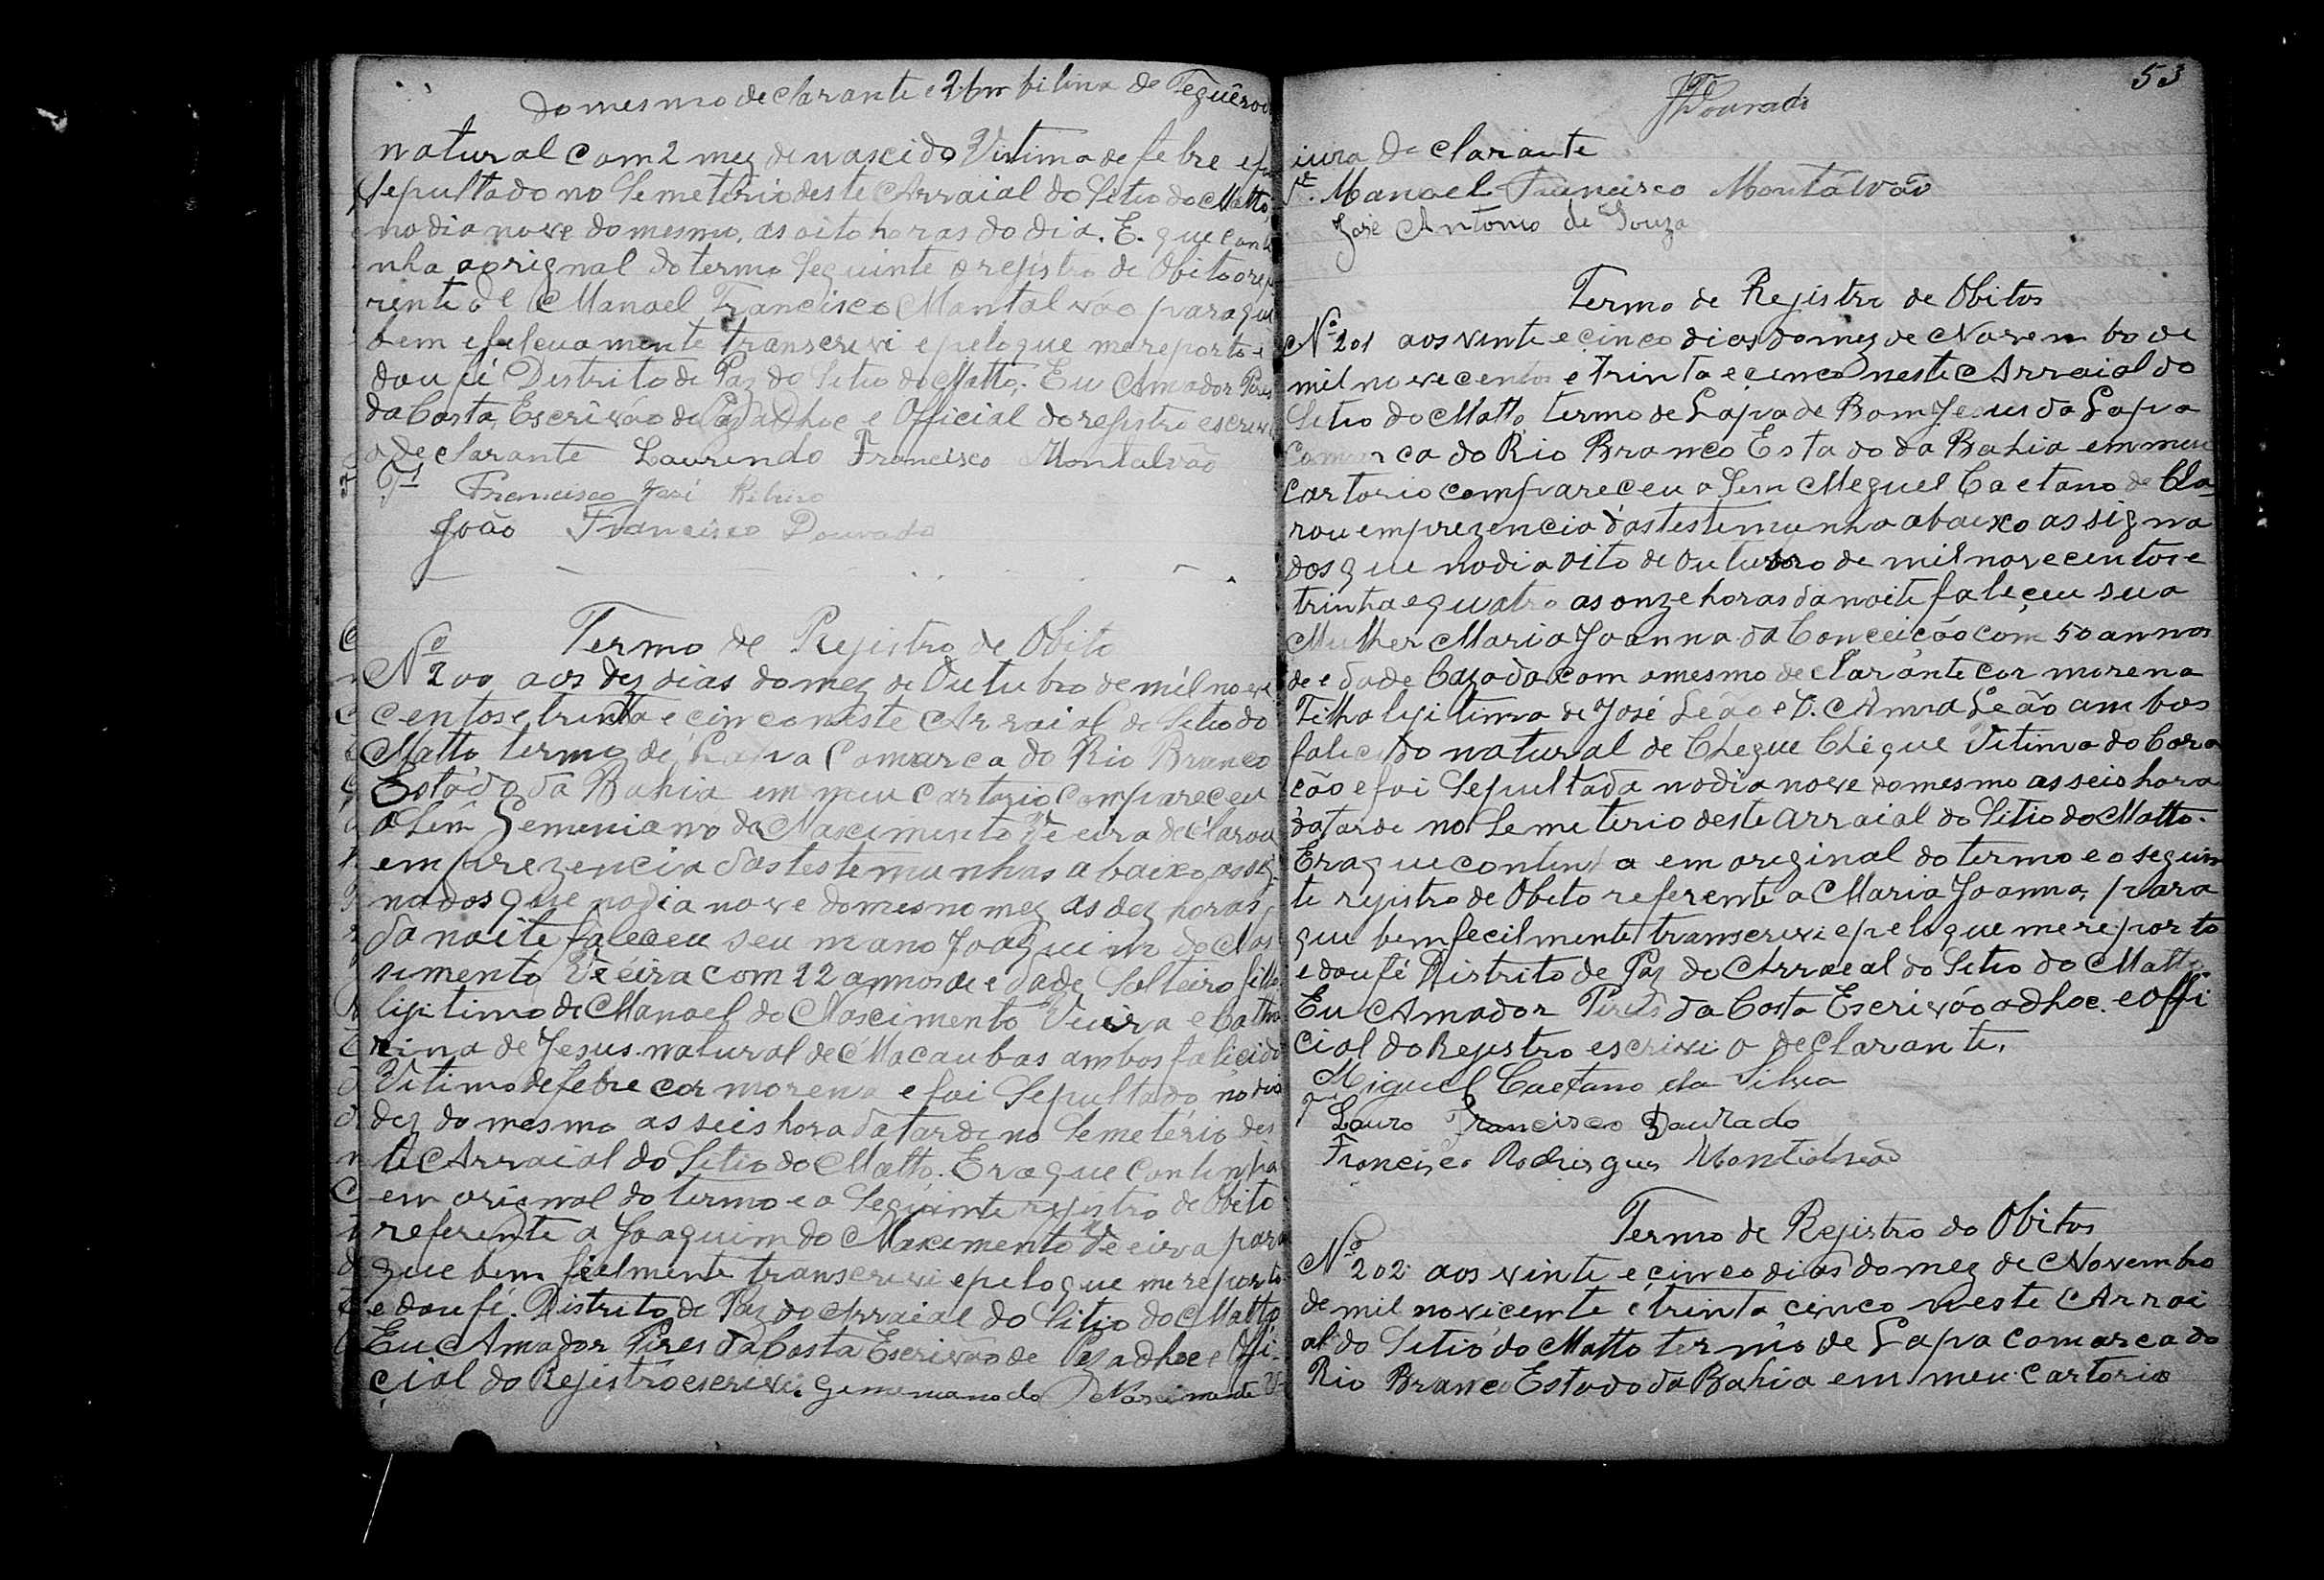 do mesmo declarante e
natural com 2 mez de nascido Vitima de febre e foi
sepultado no Semeterio deste Arraial do Sitio do Matto,
no dia nove do mesmo, as oito horas do dia. E. que conti
nha a orignal do termo Seguinte o registro de Obito
rente de Manoel Francisco Mantalvão para que
bem e transcrevi e pelo que me reporto e
dou fé Destrito de Paz do Sitio do Matto. Eu Amador Pires
da Costa, Escrivão de Paz adhoc e Official do registro escrevi
o declarante Laurindo Francisco Montalvão
Francisco José Ribeiro
João Francisco Dourado
Termo de Registro de Obito
Nº 200 aos dez dias do mez de Outubro de mil nove
centos e trinta e cinco neste Arraial do Sitio do
Matto termo de Lapva Comarca do Rio Branco
Estádo da Bahia em meu cartorio compareceu
o Senr Gemeniano do Nascimento Vieira declarou
em prezencia das testemunhas abaixo assig
nados que no dia nove do mesmo mez as dez horas
da noite faleceu seu mano Joaquim do Nas
simento Vieira com 22 annos de edade Solteiro filho
ligitimo de Manoel do Nascimento Vieira e Catha
rina de Jesus natural de Macaubas ambos falicido
Vitimo de febre cor morena e foi Sepultado no dia
dez do mesmo as seis hora da tarde no Semetério des
te Arraial do Sitio do Matto. Era que continha
em orignal do termo e o Seguinte registro de Obito
referente a Joaquim do Nascimento Vieira para
que bem fielmente transcrevi e pelo que me reporto
e dou fé. Distrito de Paz do Arraial do Sitio do Matto
Eu Amador Pires da Costa Escrivão de Paz adhoc e Offi-
cial do Rejistro escrevi. Gememiano do Nascimento
53
JDourado
declarante
Manoel Francisco Montalvão
José Antonio de Souza
Termo de Rejistro de Obitos
Nº 201 aos vinte e cinco dias do mez de Novembo de
mil novecentos e trinta e cinco neste Arraial do
Sitio do Matto termo de Lapva de Bom Jesus da Lapva
Comarca do Rio Branco Estado da Bahia em meu
cartorio compareceu o Senr Meguel Caetano de Cla
rou em prezencia das testemunha abaixo assigna
dos que no dia oito de Outubro de mil novecentos e
trinta e quatro as onze horas da noite faleceu sua
Mulher Maria Joanna da Conceicão com 50 annos
de edade Cazada com o mesmo declarante cor morena
Filha ligitima de José Leão e D. Anna Leão ambos
falicido natural de Cheque Chéque Vitima do Cora
cão e foi Sepultada no dia nove do mesmo as seis hora
da tarde no Semeterio deste arraial do Sitio do Matto.
Era que continha em original do termo e o seguin
te rejistro de Obito referente a Maria Joanna, para
que bem fecilmente transcrevi e pelo que me reporto
e dou fé Distrito de Paz do Arraeal do Setio do Matto
Eu Amador Pires da Costa Escrivão adhoc. e offi
cial do Rejistro escrevi o declarante.
Miguel Caetano da Silva
Lauro Francisco Dourado
Francisco Rodrigues Montalvão
Termo de Rejistro do Obitos
Nº 202 aos vinte e cinco dias do mez de Novembro
de mil novicente e trinta cinco neste Arrai
al do Sitio do Matto termo de Lapa comarca do
Rio Branco Estado da Bahia em meu cartorio